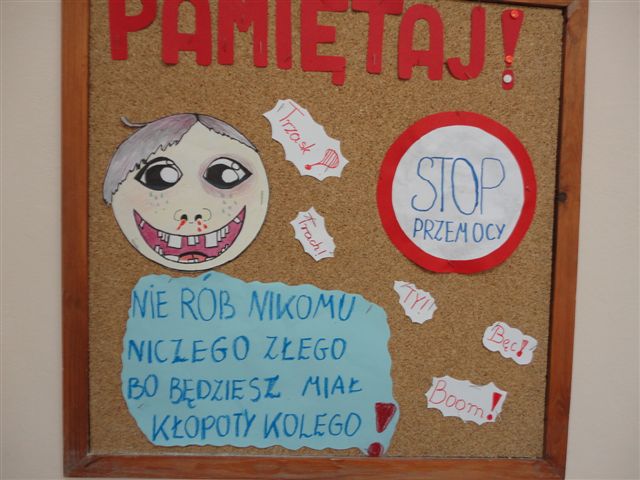 PAMIĘTAJ!
Trzask!
STOP
PRZEMOCY
Trach!
TY!!
Bęc!
Boom!
NIE RÓB NIKOMU
NICZEGO ZŁEGO
BO BĘDZIESZ MIAŁ
KŁOPOTY KOLEGO!